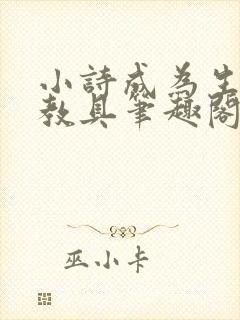 小詩成為生
教具筆趣閣
巫小卡